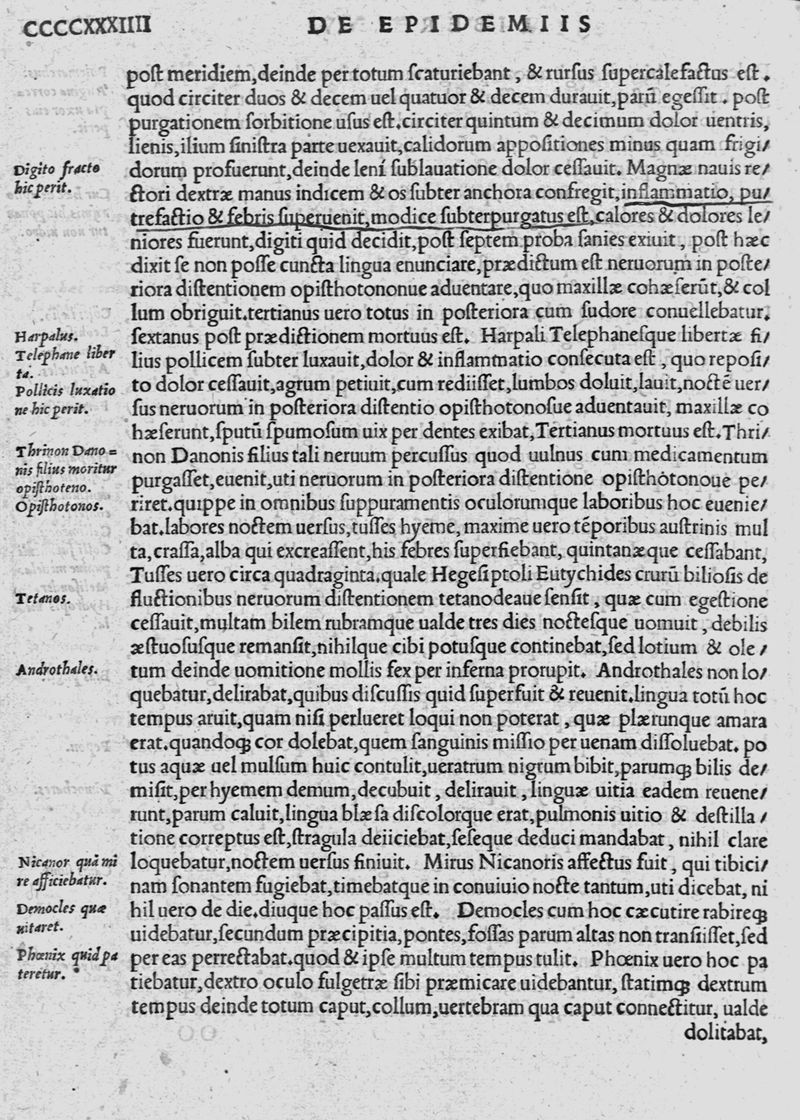 CCCCXXXIIII
DE EPIDEMIIS
post meridiem,deinde per totum scaturiebant, & rursus supercalefactus est.
quod circiter duos & decem uel quatuor & decem durauit,parū egessit. post
purgationem sorbitione usus est.circiter quintum & decimum dolor uentris,
lienis,ilium sinistra parte uexauit,calidorum appositiones minus quam frigi/
dorum profuerunt,deinde leni sublauatione dolor cessauit. Magnæ nauis re/
ctori dextræ manus indicem & os subter anchora confregit,inflammatio, pu/
trefactio & febris superuenit,modice subterpurgatus est,calores & dolores le/
niores fuerunt,digiti quid decidit,post septem proba sanies exiuit, post hæc
dixit se non posse cuncta lingua enunciare,prædictum est neruorum in poste/
riora distentionem opisthotononue aduentare,quo maxillæ cohæserūt,& col
lum obriguit.tertianus uero totus in posteriora cum sudore conuellebatur.
sextanus post prædictionem mortuus est. Harpali Telephanesque libertæ fi/
lius pollicem subter luxauit,dolor & inflammatio consecuta est, quo reposi/
to dolor cessauit,agrum petiuit,cum rediisset,lumbos doluit,lauit,noctē uer/
sus neruorum in posteriora distentio opisthotonosue aduentauit, maxillæ co
hæserunt,sputū spumosum uix per dentes exibat,Tertianus mortuus est.Thri/
non Danonis filius tali neruum percussus quod uulnus cum medicamentum
purgasset,euenit,uti neruorum in posteriora distentione opisthotonoue pe/
riret.quippe in omnibus suppuramentis oculorumque laboribus hoc euenie/
bat.labores noctem uersus,tusses hyeme, maxime uero tēporibus austrinis mul
ta,crassa,alba qui excreassent,his febres superfiebant, quintanæque cessabant,
Tusses uero circa quadraginta.quale Hegesiptoli Eutychides crurū biliosis de
fluctionibus neruorum distentionem tetanodeaue sensit, quæ cum egestione
cessauit,multam bilem rubramque ualde tres dies noctesque uomuit, debilis
æstuosusque remansit,nihilque cibi potusque continebat,sed lotium & ole/
tum deinde uomitione mollis fex per inferna prorupit. Androthales non lo/
quebatur,delirabat,quibus discussis quid superfuit & reuenit.lingua totū hoc
tempus aruit,quam nisi perlueret loqui non poterat, quæ plærunque amara
erat.quandoq; cor dolebat,quem sanguinis missio per uenam dissoluebat. po
tus aquæ uel mulsum huic contulit,ueratrum nigrum bibit,parumq; bilis de/
misit,per hyemem demum,decubuit, delirauit, linguæ uitia eadem reuene/
runt,parum caluit,lingua blæsa discolorque erat,pulmonis uitio & destilla/
tione correptus est,stragula deiiciebat,seseque deduci mandabat, nihil clare
loquebatur,noctem uersus finiuit. Mirus Nicanoris affectus fuit, qui tibici/
nam sonantem fugiebat,timebatque in conuiuio nocte tantum,uti dicebat, ni
hil uero de die.diuque hoc passus est. Democles cum hoc cæcutire rabireq;
uidebatur,secundum præcipitia,pontes,fossas parum altas non transiisset,sed
per eas perrectabat.quod & ipse multum tempus tulit. Phœnix uero hoc pa
tiebatur,dextro oculo fulgetræ sibi præmicare uidebantur, statimq; dextrum
tempus deinde totum caput,collum,uertebram qua caput connectitur, ualde
dolitabat,
Digito fracto
hic perit.
Harpalus.
Telephane liber
ta.
Pollicis luxatio
ne hic perit.
Thrinon Dano=
nis filius moritur
opisthoteno.
Opisthotonos.
Tetanos.
Androthales.
Nicanor quā mi
re afficiebatur.
Democles quæ
uitaret.
Phœnix quid pa
teretur.